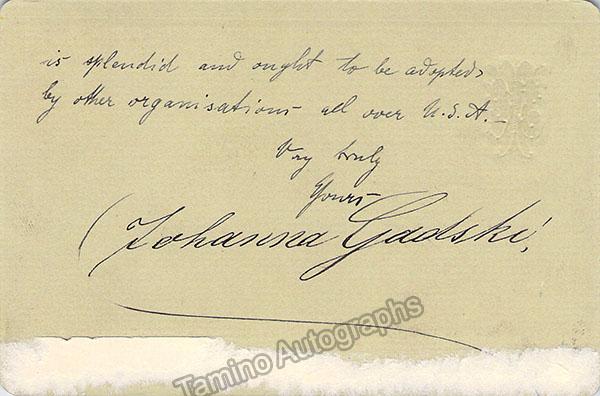 is splendid and ought to be adopted
by other organisations all over U.S.A. _
Very truly
Yours
Johanna Gadski,
Tamino Autographs